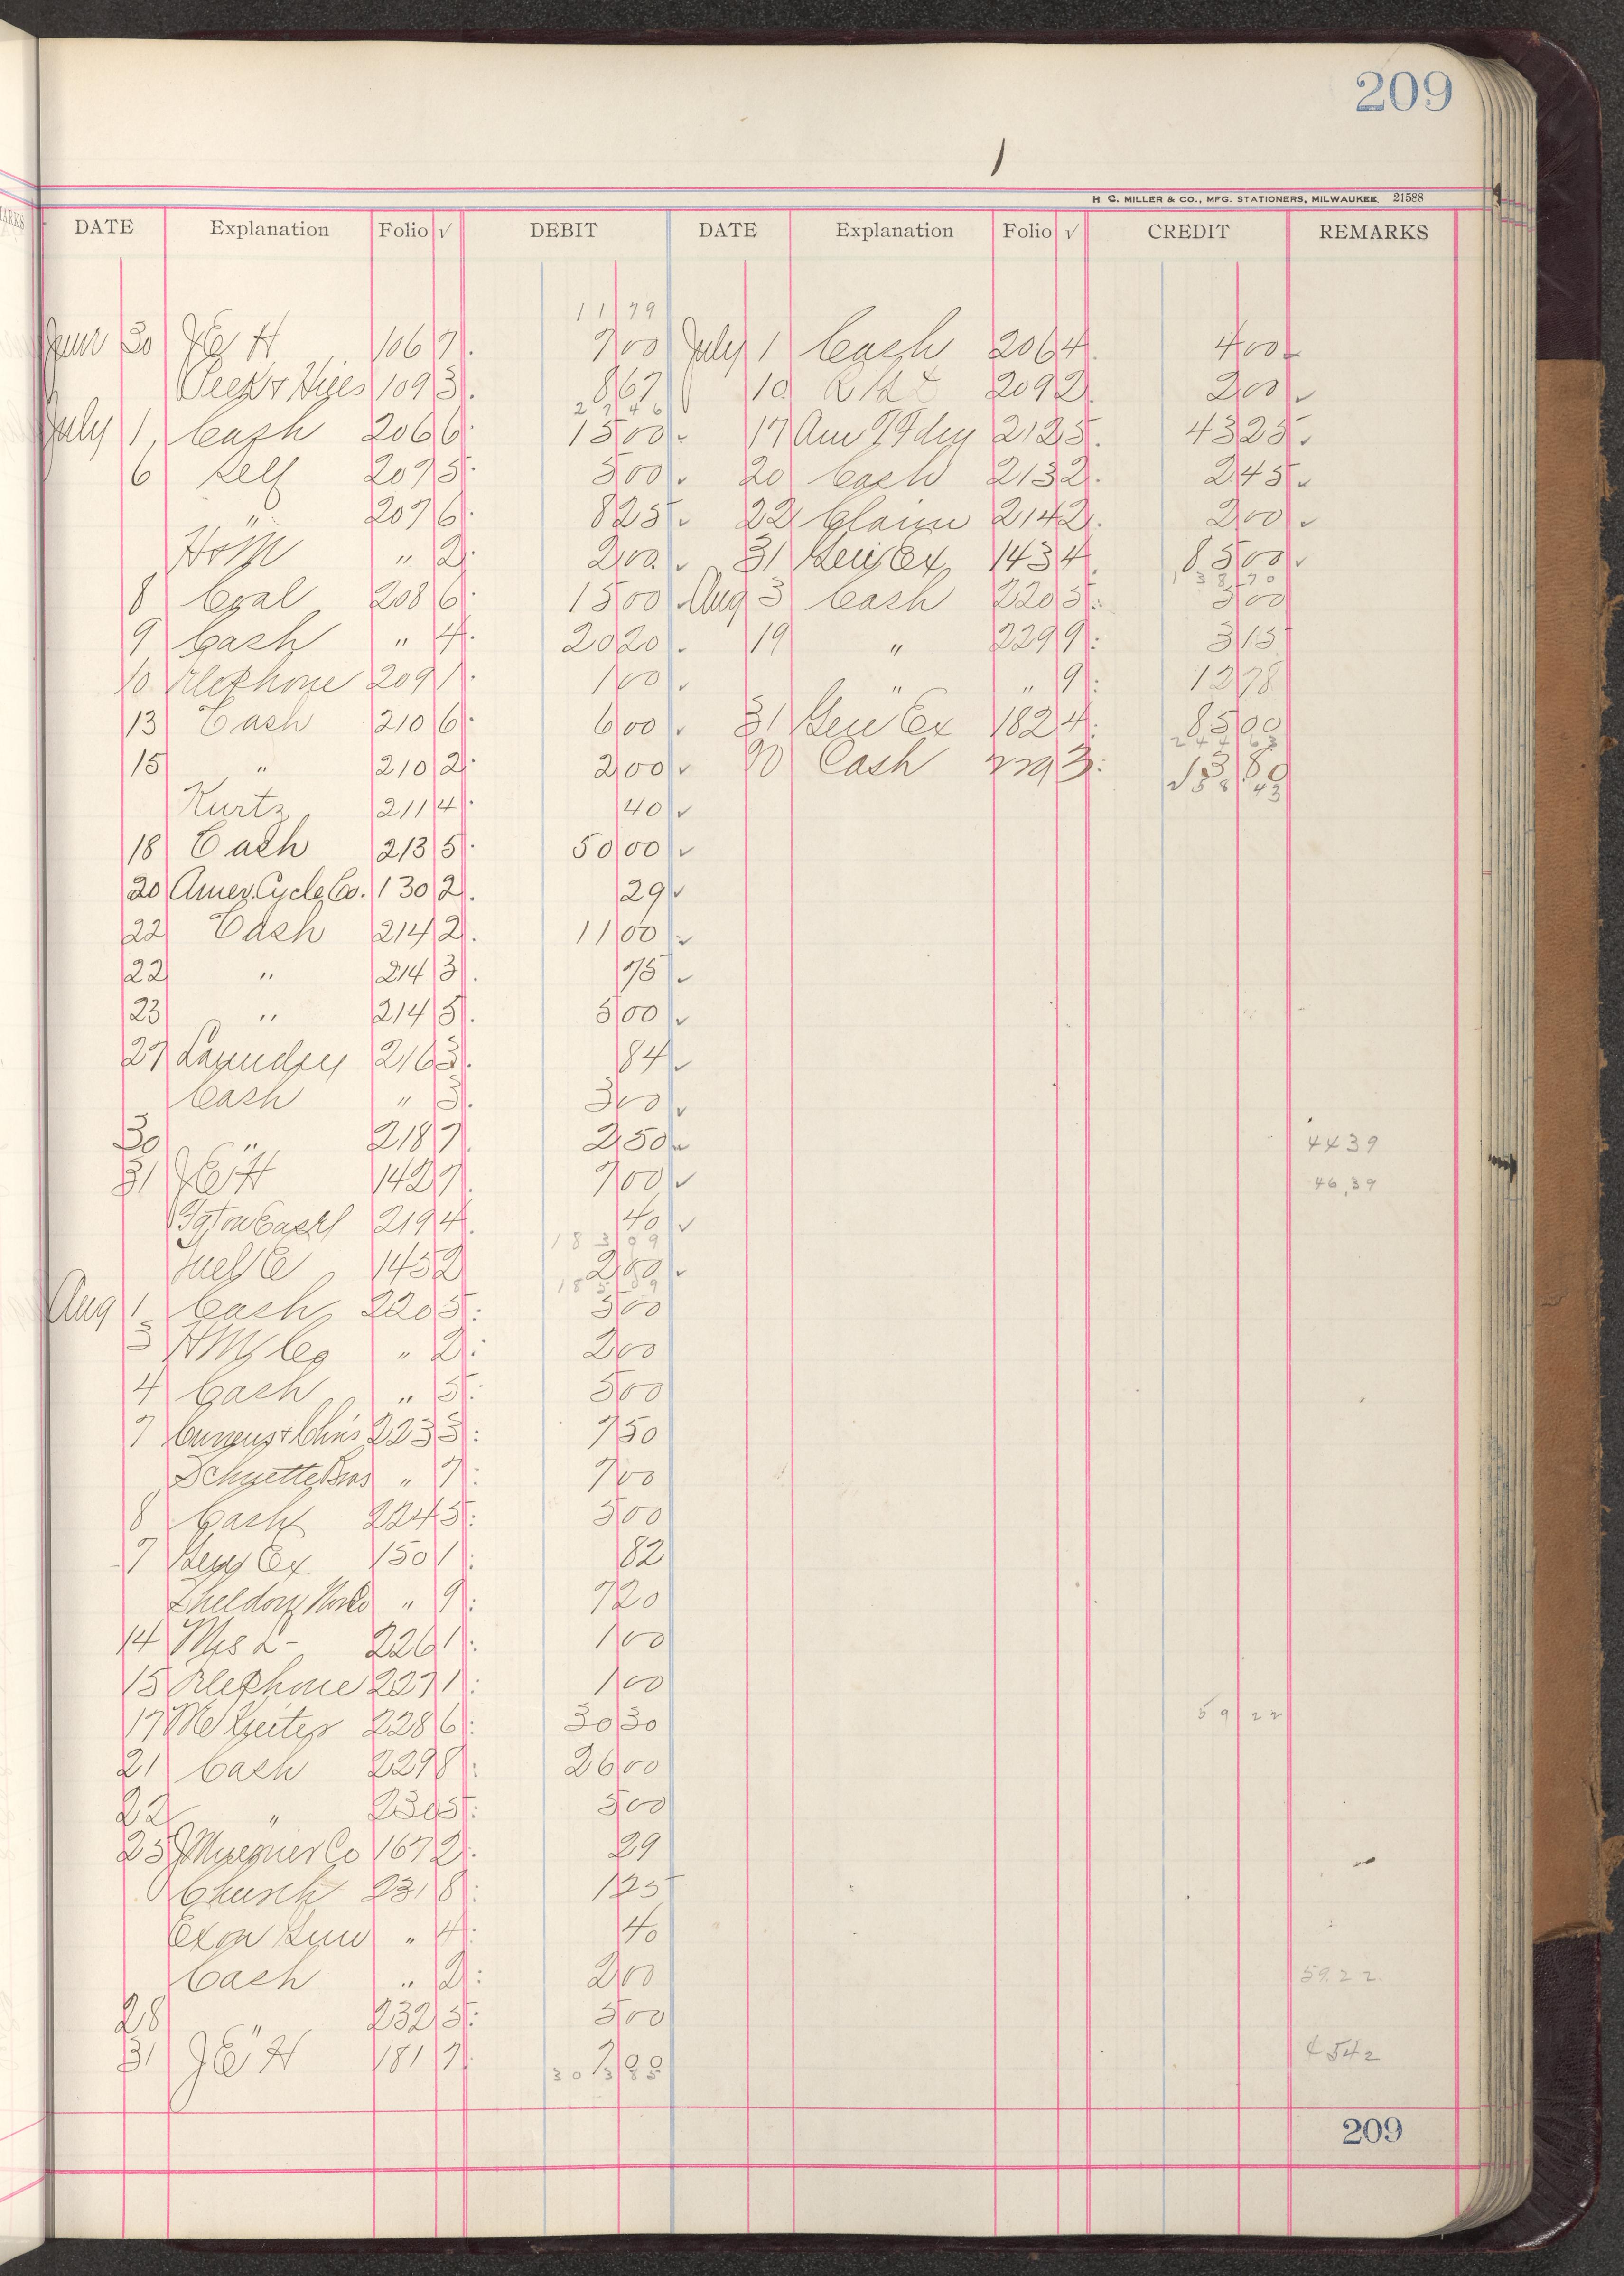 209
H. C. MILLER & CO., MFG. STATIONERS, MILWAUKEE. 21588
DATE Explanation Folio √ DEBIT DATE Explanation Folio √ CREDIT REMARKS
11 79
June 30 1067 7 00 July 1 Cash 2064 4 00
1093 8 67 10 2092 2 00
22 46
July 1 Cash 2066 15 00 17 Am 2125 43 25
6 Self 2075 5 00 20 Cash 2132 2 45
" 2076 8 25 22 Claim 2142 2 00
" 2 2 00 31 Gen Ex 1434 85 00
138 70
8 Coal 2086 15 00 Aug 3 Cash 2205 5 00
9 Cash " 4 20 20 19 " 2299 3 15
10 Telephone 2091 1 00 " " 9 12 78
13 Cash 2106 6 00 31 Gen Ex 1824 85 00
244 63
15 " 2102 2 00 Cash 2293
Kurtz 2114 40
18 Cash 2135 50 00
20 Amer. Cycle Co. 1302 29
22 Cash 2142 11 00
22 " 2143 75
23 " 2145 5 00
27 Laundry 2163 84
Cash " 3 3 00
30 " 2187 2 50 44 39
31 1427 7 00 46.39
2194 40
183 09
1432 2 00
185 09
Aug 1 Cash 2205 5 00
3 " 2 2 00
4 Cash " 5 5 00
7 2233 7 50
Schuette Bros " 7 7 00
8 Cash 2245 5 00
7 Ex 1501 82
Sheldon " 9 7 20
14 Mrs L- 2261 1 00
15 Telephone 2271 1 00
17 2286 30 30 59 22
21 Cash 2298 26 00
22 " 2305 5 00
25 Co 1672 29
Church 2318 1 25
" 4 40
Cash " 2 2 00 59.22
28 " 2325 5 00
31 1817 4542
209